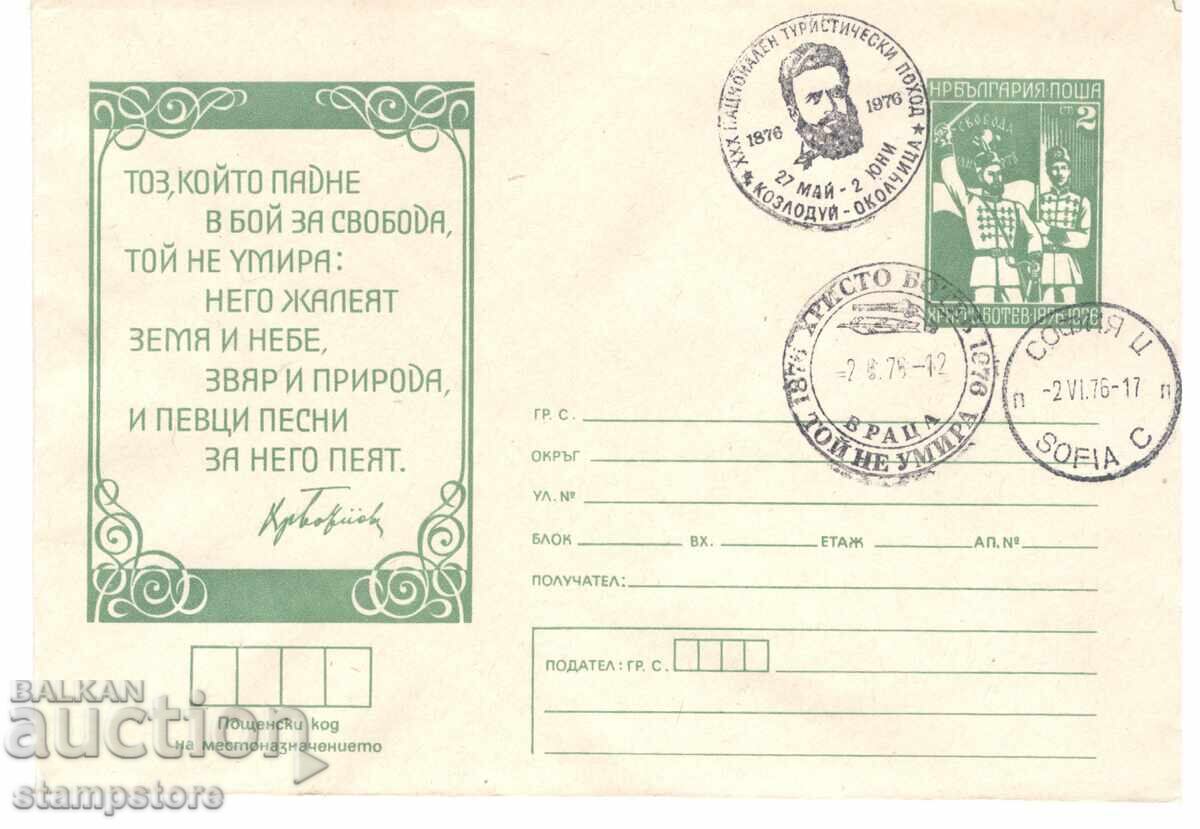 ТОЗ, КОЙТО ПАДНЕ
В БОЙ ЗА СВОБОДА,
ТОЙ НЕ УМИРА:
НЕГО ЖАЛЕЯТ
ЗЕМЯ И НЕБЕ,
ЗВЯР И ПРИРОДА,
И ПЕВЦИ ПЕСНИ
ЗА НЕГО ПЕЯТ.
XXX НАЦИОНАЛЕН ТУРИСТИЧЕСКИ ПОХОД
1876 1976
27 МАЙ - 2 ЮНИ
КОЗЛОДУЙ - ОКОЛЧИЦА
НР БЪЛГАРИЯ · ПОЩА
СТ. 2
СВОБОДА
ХРИСТО БОТЕВ · 1876·1976
1876 ХРИСТО БОТЕВ 1976
ВРАЦА
ТОЙ НЕ УМИРА
СОФИЯ Ц
П -2 VI.76-17 П
SOFIA C
ГР. С.
ОКРЪГ
УЛ. №
БЛОК ВХ. ЕТАЖ АП. №
ПОЛУЧАТЕЛ:
ПОДАТЕЛ: ГР. С.
Пощенски код
на местоназначението
BALKAN
auction
stampstore